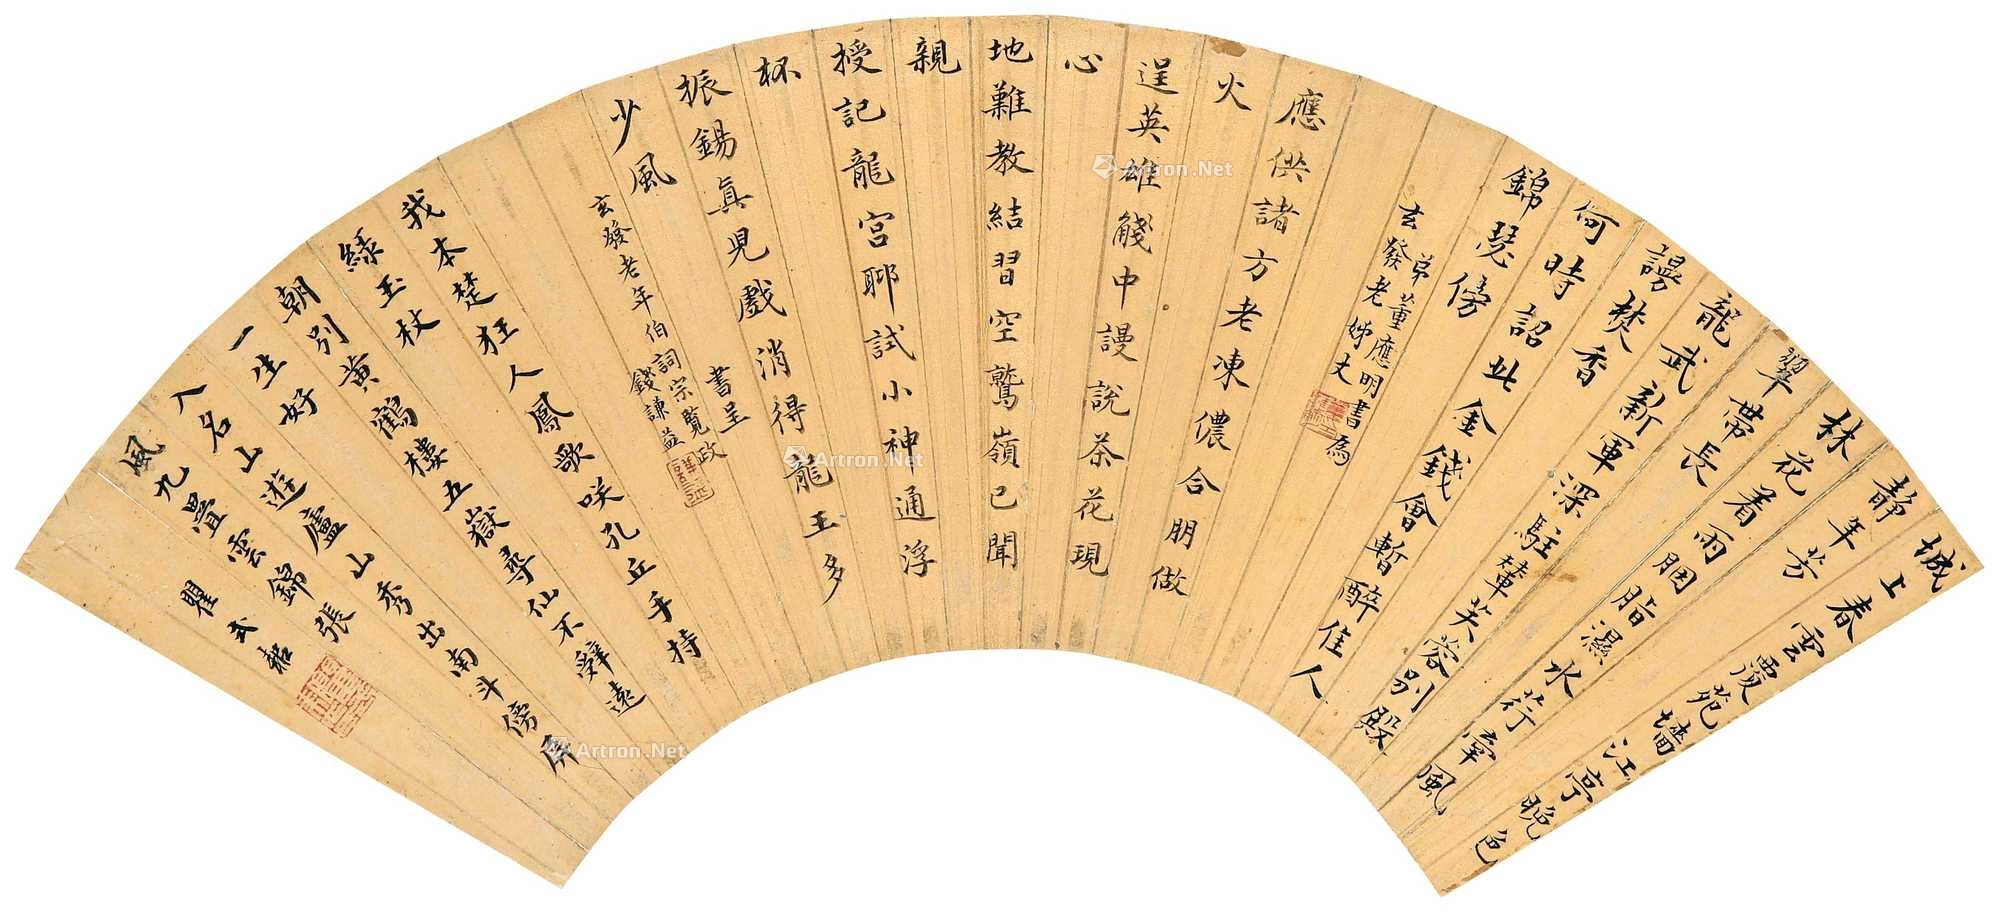 城上春雲覆苑墻江亭晚色
靜年芳
林花着雨胭脂濕水荇牽風
翠帶長
龍武新軍深駐輦芙蓉別殿
謾焚香
何時詔此金錢會暫醉佳人
錦瑟傍
弟董應明書為
玄發老姊丈
應供諸方老凍儂合朋做
火
逞英雄中謾說茶花現
心
地難教結習空鷲嶺已聞
親
授記龍宮聊試小神通浮
杯
振錫真児戲消得龍王多
少風
書呈
玄發老年伯詞宗覽政
錢謙益
我本楚狂人鳳歌咲孔丘手持
綠玉杖
朝別黃鶴樓五嶽尋仙不辭遠
一生好
入名山遊廬山秀出南斗傍屏
風九疊雲錦張
瞿式耜
Artron.Net
Artron.Net
Artron.Net